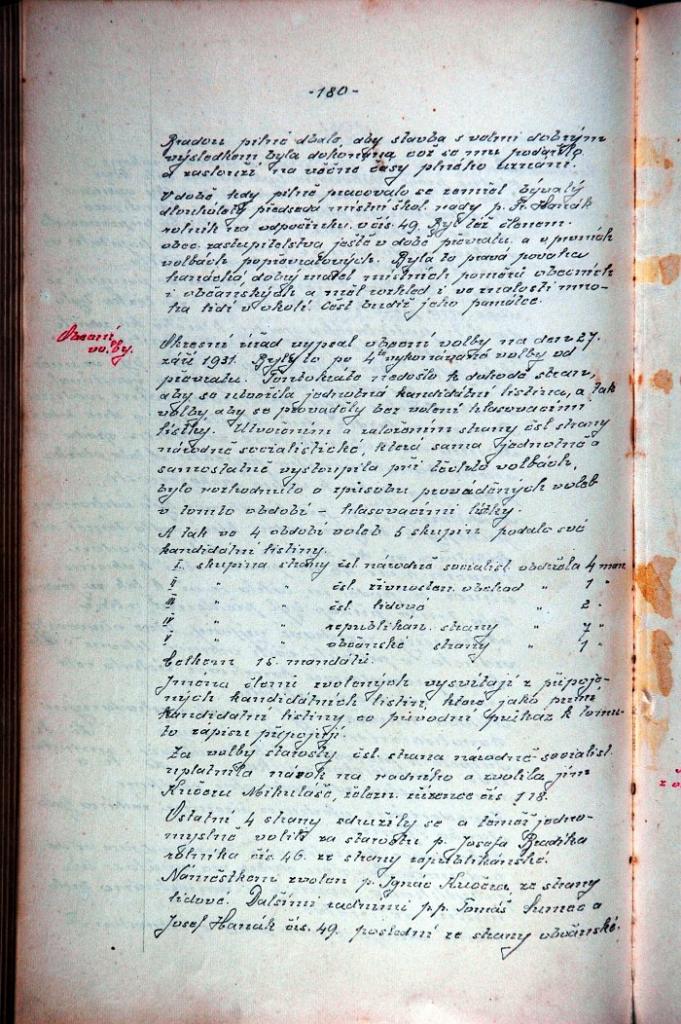 -180-
Bradou pilně dbalo, aby stavba s velmi dobrým
výsledkem byla dokončena což se mu podařilo
a zaslouží na věčné časy plného uznání.
V době kdy pilně pracovalo se zemřel bývalý
dlouholetý předseda místní škol. rady p. Fr. Hanák
rolník na odpočinku v čís. 49. Byl též členem
obec. zastupitelstva ještě v době převratu a v prvních
volbách popřevratových. Byla to pravá povaha
hanácká, dobrý znatel místních poměrů obecních
i občanských a měl rozhled i ve znalosti mno-
ha lidí v okolí. Čest budiž jeho památce.
Obecní
volby.
Okresní úřad vypsal obecní volby na den 27.
září 1931. Byly to po 4té vykonávané volby od
převratu. Tentokráte nedošlo k dohodě stran,
aby se utvořila jednotná kandidátní listina, a tak
volby aby se prováděly bez volení hlasovacími
lístky. Utvořením a založením strany čsl. strany
národně socialistické, která sama jednotně a
samostatně vystoupila při těchto volbách,
bylo rozhodnuto o způsobu prováděných voleb
v tomto období – hlasovacími lístky.
A tak ve 4 období voleb 5 skupin podalo své
kandidátní listiny.
I. skupina strany čsl. národně socialist. obdržela 4 man.
II " " čsl. živnosten. obchod " 1 "
III " " čsl. lidové " 2 "
IV " " republikán. strany " 7 "
V " " občanské strany " 1 "
Celkem 15. mandátů.
Jména členů zvolených vysvítají z připoje-
ných kandidátních listin, které jako první
kandidátní listiny co původní průkaz k tomu-
to zápisu připojuji.
Za volby starosty čsl. strana národně-socialist.
uplatnila nárok na radního a zvolila jím
Kučeru Mikuláše, želez. zřízence čís. 118.
Ostatní 4 strany sdružily se a téměř jedno-
myslně volili za starostu p. Josefa Bradíka
rolníka čís. 46. ze strany republikánské.
Náměstkem zvolen p. Ignác Kučera, ze strany
lidové. Dalšími radními p.p. Tomáš Sumec a
Josef Hanák čís. 49. poslední ze strany občanské.